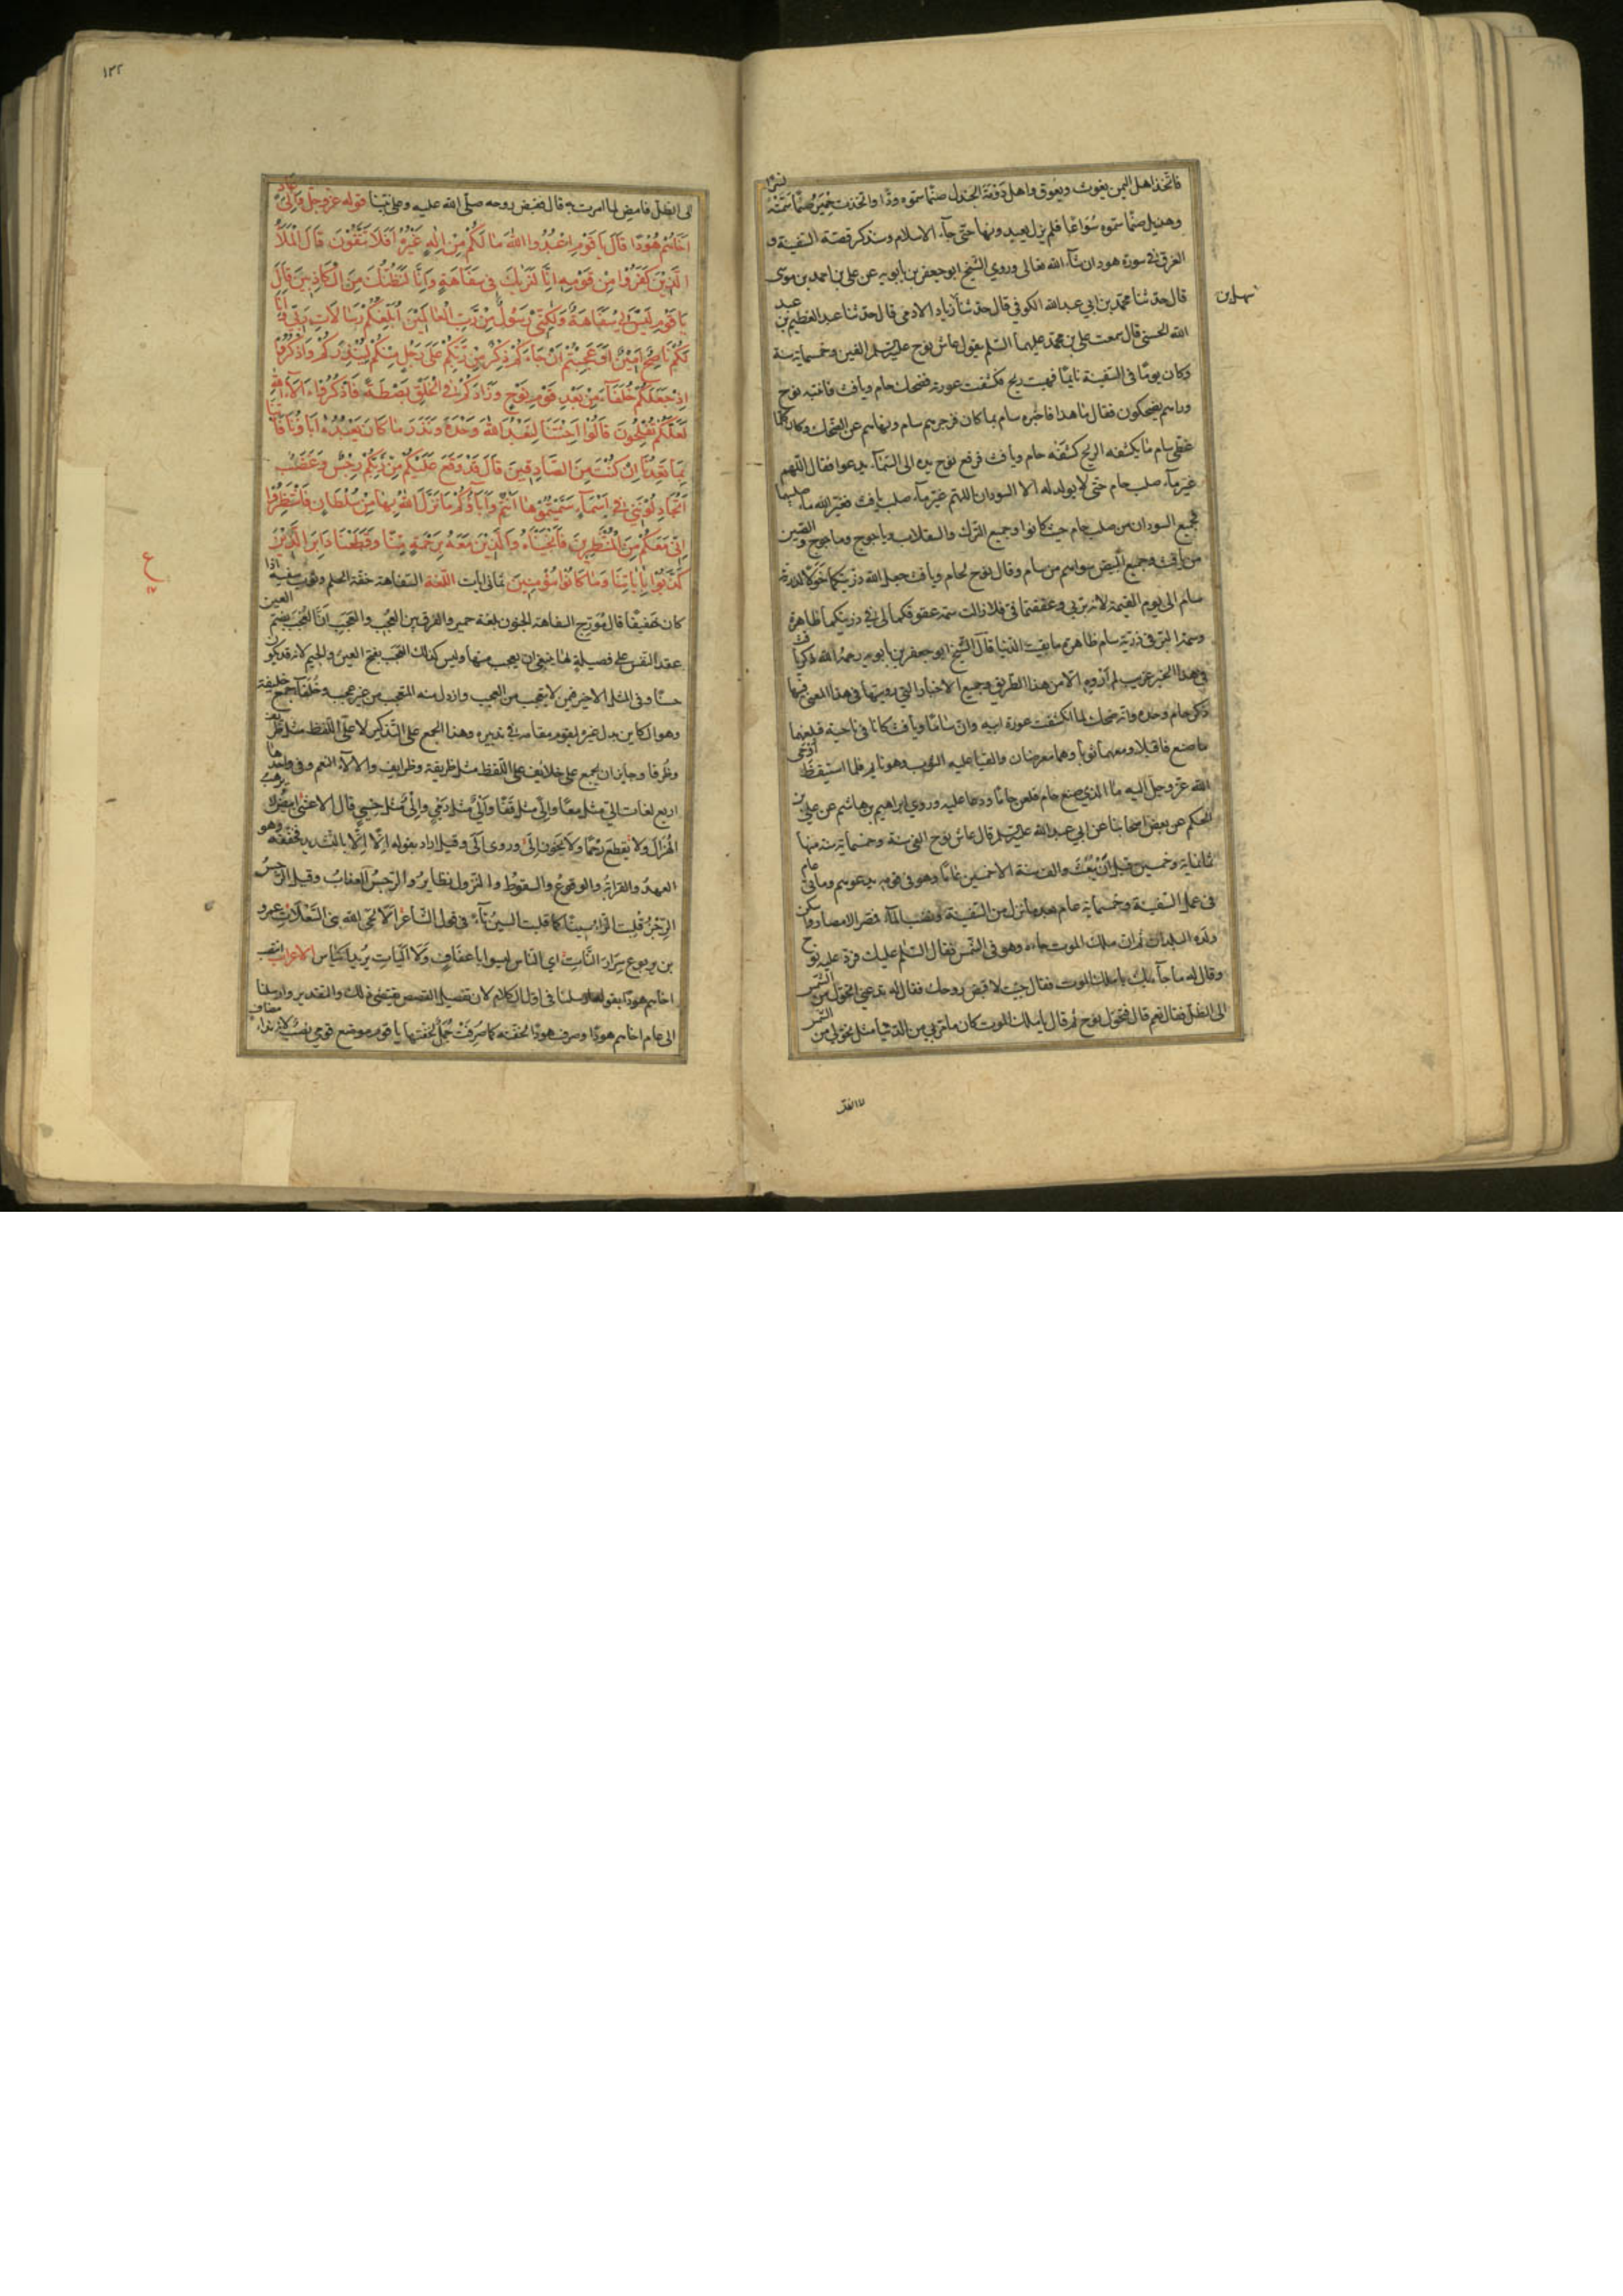 فاتخذ اهل اليمن يغوث ويعوق واهل دومة الجندل صنما سموه ودا واتخذت حمير صنما سمته نسرا
وهذيل صنما سموه سواعا فلم يزل يعبدونها حتى جاء الاسلام وسنذكر قصة السفينة و
الغرق في سورة هود ان شاء الله تعالى وروى الشيخ ابو جعفر بن بابويه عن علي بن احمد بن موسى
قال حدثنا محمد بن ابي عبد الله الكوفي قال حدثنا زياد الادمي قال حدثنا عبد العظيم بن عبد
سهل بن
الله الحسني قال سمعت علي بن محمد عليهما السلم يقول عاش نوح الفين وخمسماية سنة
وكان يوما في السفينة نايما فهبت ريح فكشفت عورته فضحك حام ويافث فانتبه نوح
وراهم يضحكون فقال ما هذا فاخبره سام بما كان فزجرهم سام ونهاهم عن الضحك وكان كلما
غطى سام ما يكشفه الريح كشفه حام ويافث فرفع نوح يده الى السماء يدعوا فقال اللهم
غير ماء صلب حام حتى لا يولد له الا السودان اللهم غير ماء صلب يافث فغير الله ماء صلبهما
فجميع السودان من صلب حام حيث كانوا وجميع الترك والسقلاب وياجوج وماجوج والصين
من يافث وجميع البيض سواهم من سام وقال نوح لحام ويافث جعل الله ذريتكما خولا لذرية
سام الى يوم القيمة لانه بر بي وعققتماني فلا زالت سمة عقوقكما لي في ذريتكما ظاهرة
وسمة البر في ذرية سام ظاهرة ما بقيت الدنيا قال الشيخ ابو جعفر بن بابويه رحمه الله ذكر يافث
في هذا الخبر غريب لم اروه الا من هذا الطريق وجميع الاخبار التي رويتها في هذا المعنى فيها
ذكر حام وحده وانه ضحك لما انكشفت عورة ابيه وان ساما ويافث كانا في ناحية فبلغهما
ما صنع فاقبلا ومعهما ثوب وهما معرضان والقيا عليه الثوب وهو نايم فلما استيقظ اوحى
الله عز وجل اليه ما الذي صنع حام فلعن حاما ودعا عليه وروى ابراهيم بن هاشم عن علي بن
الحكم عن بعض اصحابنا عن ابي عبد الله قال عاش نوح الفي سنة وخمسماية سنة منها
ثمانماية وخمسين قبل ان يبعث والف سنة الا خمسين عاما وهو في قومه يدعوهم ومأتي عام
في عمل السفينة وخمسماية عام بعد ما نزل من السفينة ونضب الماء فمصر الامصار واسكن
ولده البلدان ثم ان ملك الموت جاءه وهو في الشمس فقال السلم عليك فرد عليه نوح
وقال له ما جاء بك يا ملك الموت فقال جئت لاقبض روحك فقال له تدعني اتحول من الشمس
الى الظل فقال نعم قال فتحول نوح ثم قال يا ملك الموت كان ما مر بي من الدنيا مثل تحولي من الشمس
١٣٢
الى الظل فامض لما امرت به قال فقبض روحه صلى الله عليه وعلى نبينا قوله عز وجل والى عاد
اخاهم هودا قال يا قوم اعبدوا الله ما لكم من اله غيره افلا تتقون قال الملأ
الذين كفروا من قومه انا لنريك في سفاهة وانا لنظنك من الكاذبين قال
يا قوم ليس بي سفاهة ولكني رسول من رب العالمين ابلغكم رسالات ربي وانا
لكم ناصح امين اوعجبتم ان جاءكم ذكر من ربكم على رجل منكم لينذركم واذكروا
اذ جعلكم خلفاء من بعد قوم نوح وزادكم في الخلق بصطة فاذكروا الاء الله
لعلكم تفلحون قالوا اجئتنا لنعبد الله وحده ونذر ما كان يعبد اباؤنا فأتنا
بما تعدنا ان كنت من الصادقين قال قد وقع عليكم من ربكم رجس وغضب
اتجادلونني في اسماء سميتموها انتم واباؤكم ما نزل الله بها من سلطان فانتظروا
اني معكم من المنتظرين فانجيناه والذين معه برحمة منا وقطعنا دابر الذين
كذبوا باياتنا وما كانوا مؤمنين ثماني ايات اللغة السفاهة خفة الحلم وثوب سفيه اذا
ع
كان خفيفا قال مؤرج السفاهة الجنون بلغة حمير والفرق بين العجب والعجب ان العجب بضم العين
عقد النفس على فضيلة لها ينبغي ان يعجب منها وليس كذلك العجب بفتح العين والجيم لانه قد يكون
حسنا وفي المثل لا خير فيمن لا يتعجب من العجب وارذل منه المتعجب من غير عجب وخلفاء جمع خليفة
وهو الكاين بدل غيره ليقوم مقامه في تدبيره وهذا الجمع على التذكير لا على اللفظ مثل
وظرفا وجايز ان يجمع على خلايف على اللفظ مثل ظريفة وظرايف والالاء النعم وفي واحدها
اربع لغات الى مثل معا والى مثل قفا والي مثل رمي والي مثل حسي قال الاعشى ابيض لا يرهب
الهزال ولا يقطع رحما ولا يخون الى وروى الى وقيل اراد بقوله الا الا بالتشديد فخففه وهو
العهد والقرابة والوقوع والسقوط والنزول نظاير والرجس العذاب وقيل الرجس
الرجز قلبت الزاء سينا كما قلبت السين تاء في قول الشاعر الا لحى الله بني السعلات عمرو
بن يربوع شرار النات اي الناس ليسوا باعفاف ولا اكيات يريد اكياس الاعراب انتصب
اخاهم هودا بقوله ارسلنا في اول الكلام لان تفصيل القصص يقتضي ذلك والتقدير وارسلنا
الى عام اخاهم هودا وصرف هودا لخفته كما صرفت جمل لخفتها يا قوم موضع قومي نصب لانه نداء مضاف